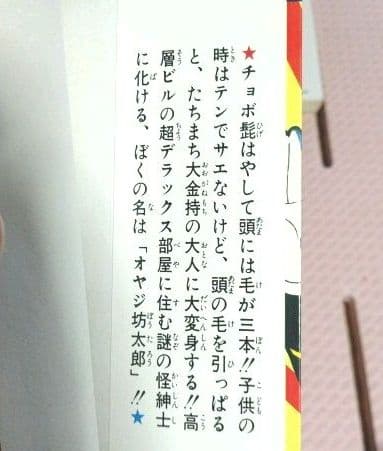 ★チョボ髭はやして頭には毛が三本!!子供の
時はテンでサエないけど、頭の毛を引っぱる
と、たちまち大金持の大人に大変身する!!高
層ビルの超デラックス部屋に住む謎の怪紳士
に化ける、ぼくの名は「オヤジ坊太郎」!!★